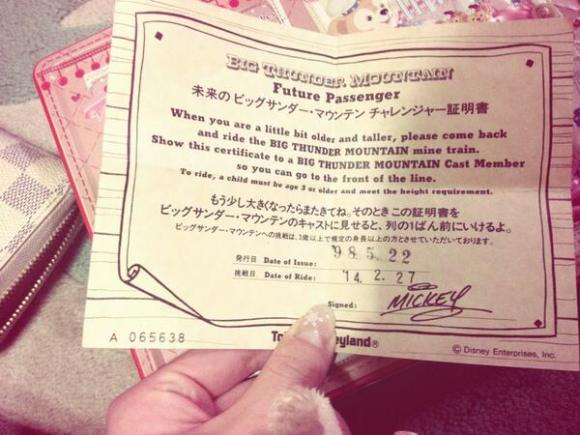 BIG THUNDER MOUNTAIN
Future Passenger
未来の ビッグサンダー・マウンテン チャレンジャー証明書
When you are a little bit older and taller, please come back
and ride the BIG THUNDER MOUNTAIN mine train.
Show this certificate to a BIG THUNDER MOUNTAIN Cast Member
so you can go to the front of the line.
To ride, a child must be age 3 or older and meet the height requirement.
もう少し大きくなったらまたきてね。そのとき この証明書を
ビッグサンダー・マウンテンのキャストに見せると、列の1ばん前にいけるよ。
ビッグサンダー・マウンテンへの挑戦は、3歳以上で規定の身長以上の方とさせていただいております。
発行日 Date of Issue: '98.5.22
挑戦日 Date of Ride: '14.2.27
Signed: MICKEY
A 065638
© Disney Enterprises, Inc.